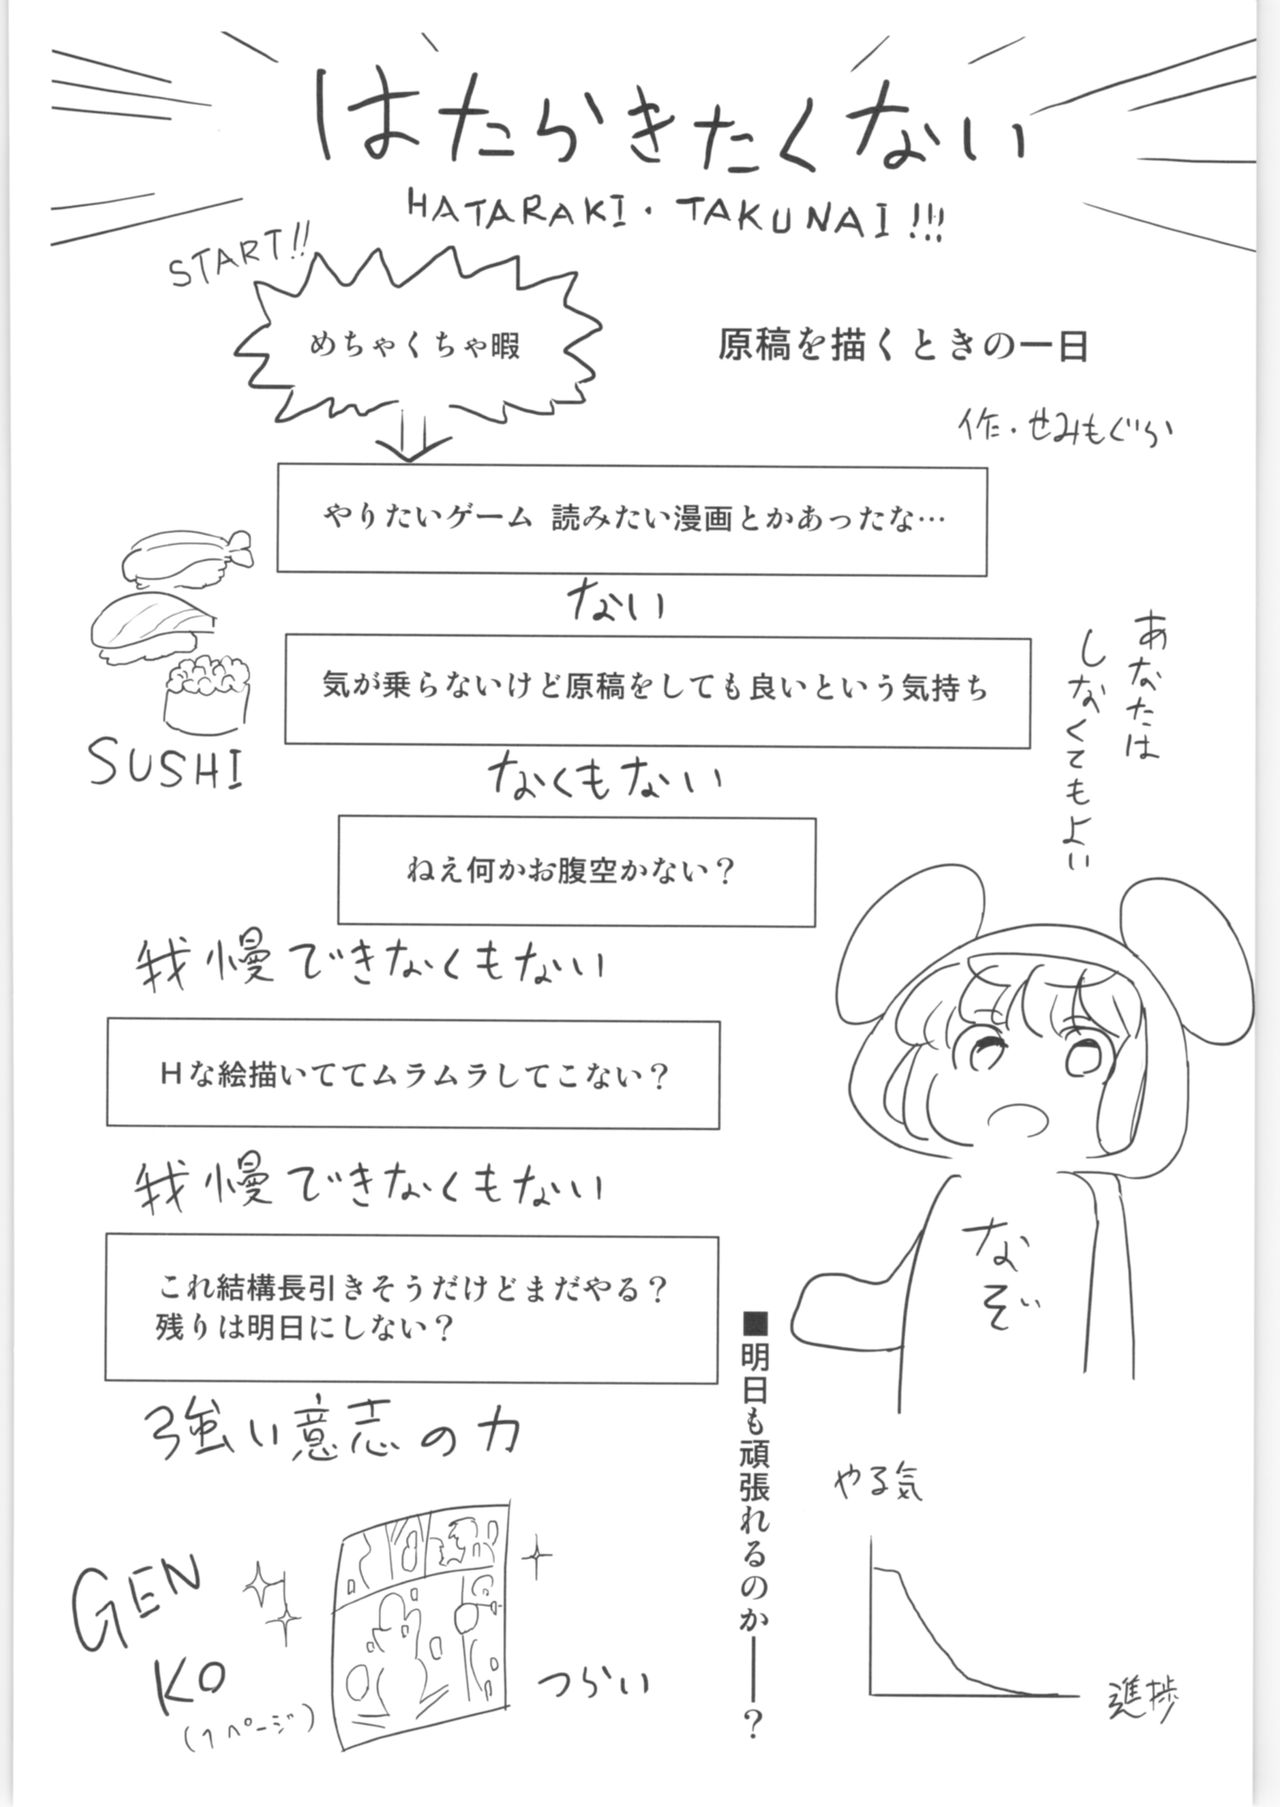 はたらきたくない
HATARAKI・TAKUNAI!!!
START!!
めちゃくちゃ暇
原稿を描くときの一日
作・せみもぐら
やりたいゲーム 読みたい漫画とかあったな…
ない
気が乗らないけど原稿をしても良いという気持ち
SUSHI
なくもない
あなたは
しなくてもよい
ねえ何かお腹空かない?
我慢できなくもない
Hな絵描いててムラムラしてこない?
我慢できなくもない
なぞ
これ結構長引きそうだけどまだやる?
残りは明日にしない?
強い意志の力
■明日も頑張れるのか――?
やる気
進捗
GEN
KO
(1ページ)
つらい